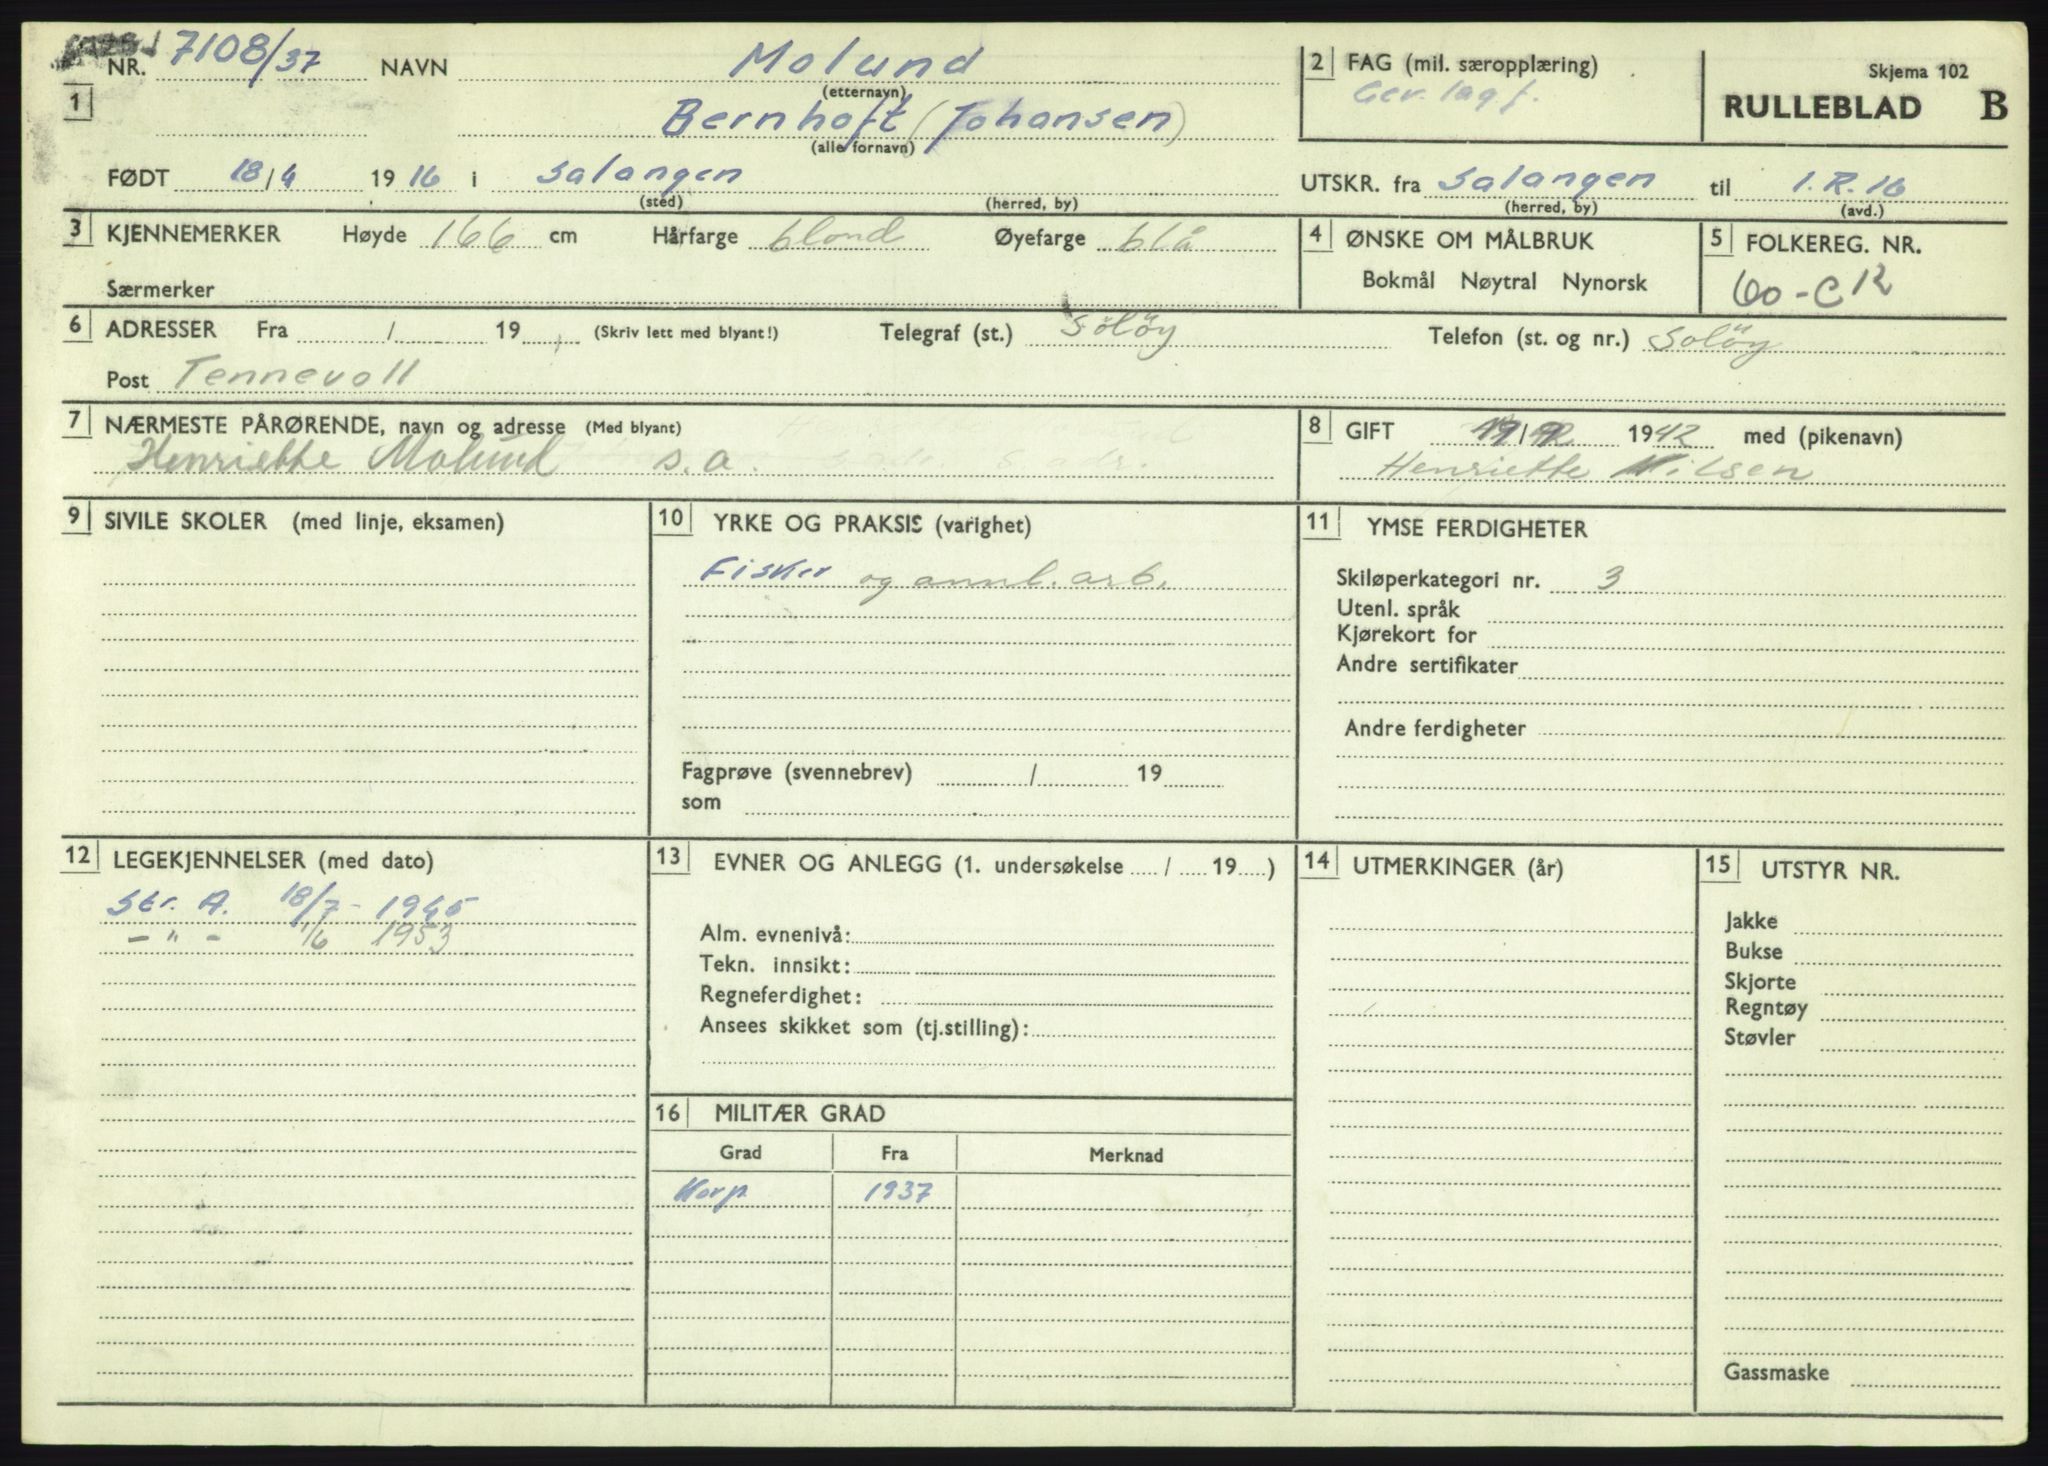 NR. 7108/37 NAVN Molund
(etternavn)
1 Bernhoft (Johansen)
(alle fornavn)
2 FAG (mil. særopplæring)
Gev. lag f.
Skjema 102
RULLEBLAD B
FØDT 18/4 1916 i Salangen
(sted) (herred, by)
UTSKR. fra Salangen til I.R.16
(herred, by) (avd.)
3 KJENNEMERKER Høyde 166 cm Hårfarge blond Øyefarge blå
Særmerker
4 ØNSKE OM MÅLBRUK
Bokmål Nøytral Nynorsk
5 FOLKEREG. NR.
60-C12
6 ADRESSER Fra / 19 (Skriv lett med blyant!) Telegraf (st.) Söløy Telefon (st. og nr.) Soløy
Post Tennevoll
7 NÆRMESTE PÅRØRENDE, navn og adresse (Med blyant)
Henriette Molund s.a.
8 GIFT 1942 med (pikenavn)
Henriette Nilsen
9 SIVILE SKOLER (med linje, eksamen)
10 YRKE OG PRAKSIS (varighet)
Fisker og annl. arb.
Fagprøve (svennebrev) / 19
som
11 YMSE FERDIGHETER
Skiløperkategori nr. 3
Utenl. språk
Kjørekort for
Andre sertifikater
Andre ferdigheter
12 LEGEKJENNELSER (med dato)
Str. A. 18/7 - 1945
- " - 1/6 1953
13 EVNER OG ANLEGG (1. undersøkelse / 19 )
Alm. evnenivå:
Tekn. innsikt:
Regneferdighet:
Ansees skikket som (tj.stilling):
14 UTMERKINGER (år)
15 UTSTYR NR.
Jakke
Bukse
Skjorte
Regntøy
Støvler
Gassmaske
16 MILITÆR GRAD
Grad Fra Merknad
Korp 1937